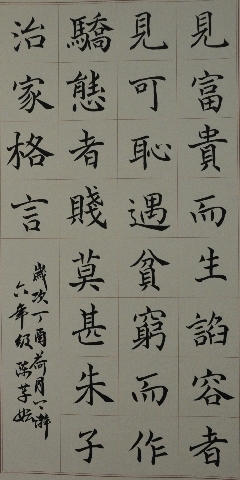 見富貴而生諂容者
見可恥遇貧窮而作
驕態者賤莫甚朱子
治家格言
歲次丁酉荷月
六年級陳